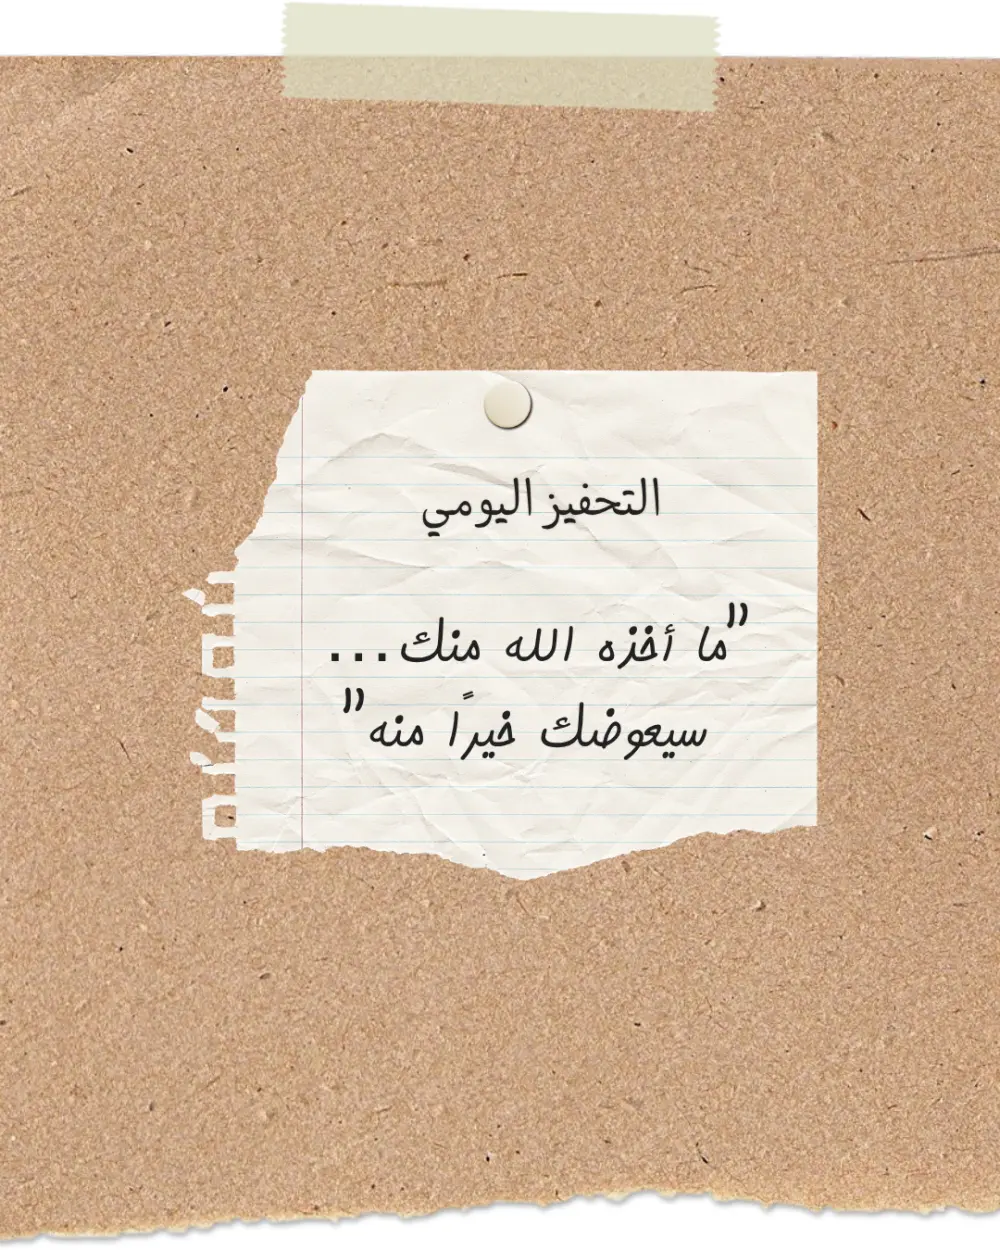 التحفيز اليومي
"ما أخذه الله منك...
سيعوضك خيرًا منه"